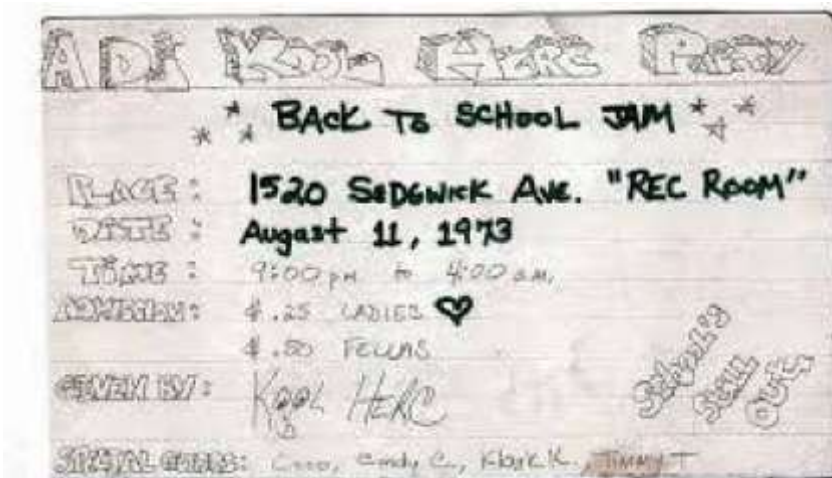 A DJ KOOL HERC PARTY
BACK TO SCHOOL JAM
PLACE: 1520 SEDGWICK AVE. "REC ROOM"
DATE: August 11, 1973
TIME: 9:00 pm to 4:00 am.
ADMISSION: $.25 LADIES
$.50 FELLAS
School's Still Out
GIVEN BY: KOOL HERC
SPECIAL GUESTS: Coco, Cindy C., Klark K., TIMMY T